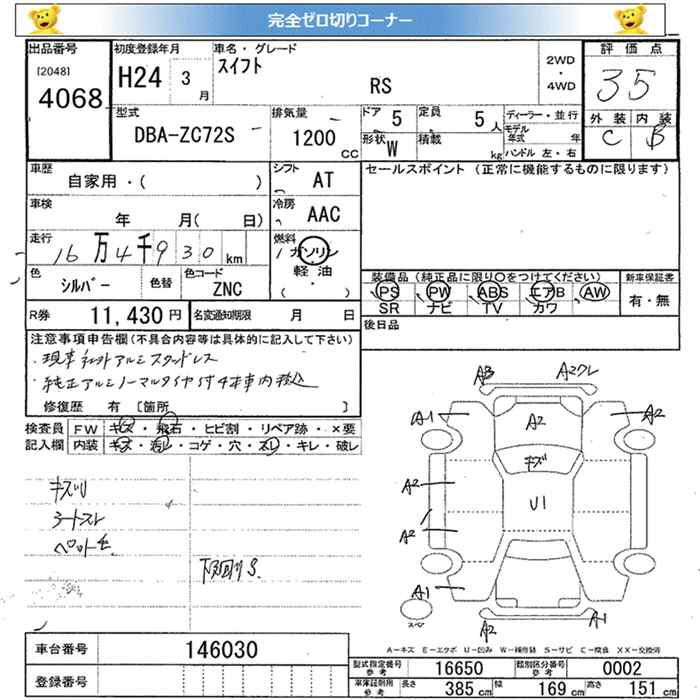 完全ゼロ切りコーナー
出品番号 初度登録年月 車名・グレード 評価点
[2048] 4068
H24 3月 スイフト RS
2WD・4WD
35
外装 内装
C B
型式 DBA-ZC72S 排気量 1200cc
ドア 5 定員 5人
形状 W 積載 kg
ディーラー・並行
モデル年式 年
ハンドル 左・右
車歴 自家用・( ) シフト AT
セールスポイント (正常に機能するものに限ります)
車検 年 月( 日) 冷房 AAC
走行 16万4千930km 燃料 ガソリン 軽油 ( ・ )
色 シルバー 色替 色コード ZNC
装備品 (純正品に限り○をつけてください) 新車保証書
PS PW ABS エアB AW 有・無
SR ナビ TV カワ
R券 11,430円 名変通知期限 月 日
後日品
注意事項申告欄(不具合内容等は具体的に記入して下さい)
・現車社外アルミスタッドレス
・純正アルミノーマルタイヤ付4本車内積込
修復歴 有 [箇所 ]
検査員記入欄 FW キズ・飛石・ヒビ割・リペア跡・×要
内装 キズ・汚レ・コゲ・穴・スレ・キレ・破レ
キズU
シートスレ
ペロット毛
下廻りS
AB A2クレ
A1 A2 A2
キズ
A2 U1
A2
A1 A2 A1
スペア
A－キズ E－エクボ U－凹み W－補修跡 S－サビ C－腐食 XX－交換済
車台番号 146030
登録番号
型式指定番号参考 16650 類別区分番号参考 0002
車庫証明用参考 長さ 385cm 幅 169cm 高さ 151cm